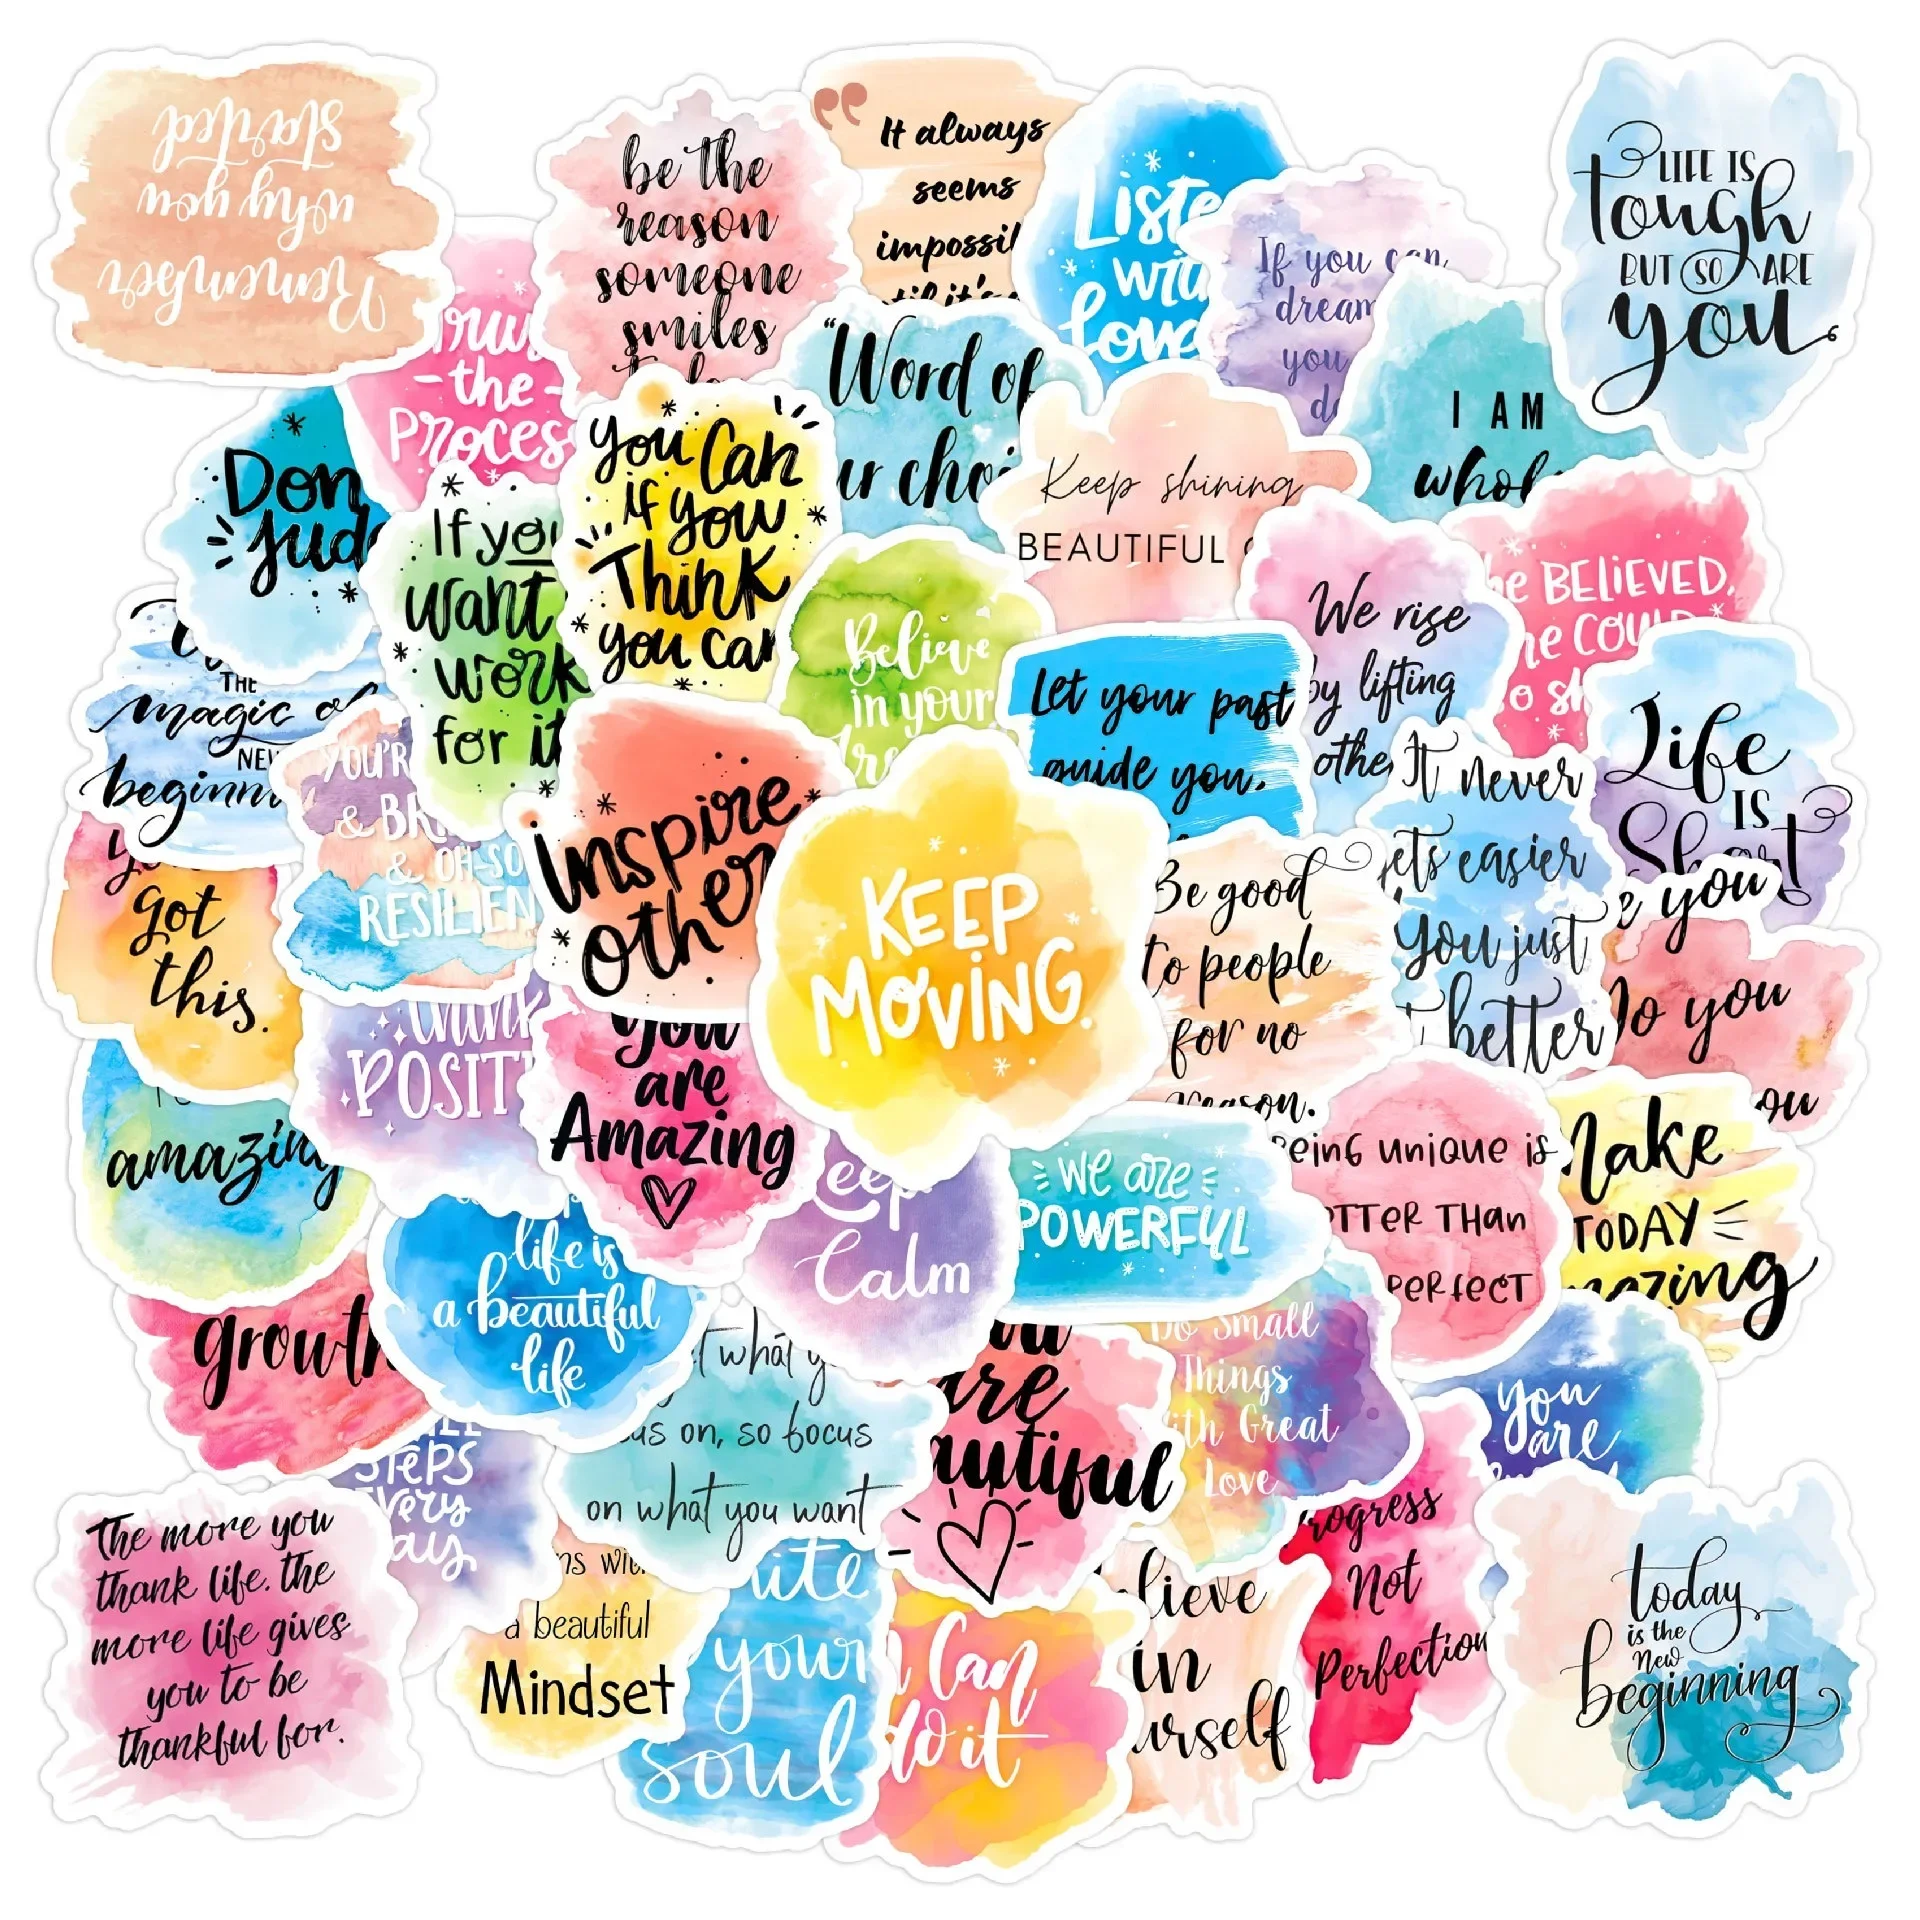 Remember
why you
started
be the
reason
someone
smiles
It always
seems
impossil
Liste
with
love
If you can
dream
you
d
LIFE IS
tough
BUT SO ARE
you
the
Proces
"Word of
ur choi
I AM
whol
Don
Jud
If you
want
work
for it
you Can
if you
Think
you can
Keep shining
BEAUTIFUL
Believe
in your
We rise
by lifting
othe
he BELIEVED,
he COUL
o sh
THE
magic of
NEW
beginn
YOU'RE
& BR
& OH-SO
RESILIEN
Inspire
other
Let your past
guide you.
Life
IS
Short
It never
ets easier
You just
t better
got
this.
KEEP
MOVING.
Be good
to people
for no
reason.
e you
Do you
ou
think
POSITI
you
are
Amazing
amazing
Keep
Calm
We are
POWERFUL
Being unique is
TTER THAN
PERFECT
Make
TODAY
mazing
life is
a beautiful
life
growth
t what y
us on, so focus
on what you want
are
autiful
Do Small
Things
ith Great
Love
you
are
STEPS
Every
ay
The more you
thank life. the
more life gives
you to be
thankful for.
ns wit
a beautiful
Mindset
your
soul
Can
do it
lieve
in
urself
rogress
Not
Perfection
today
is the
New
beginning